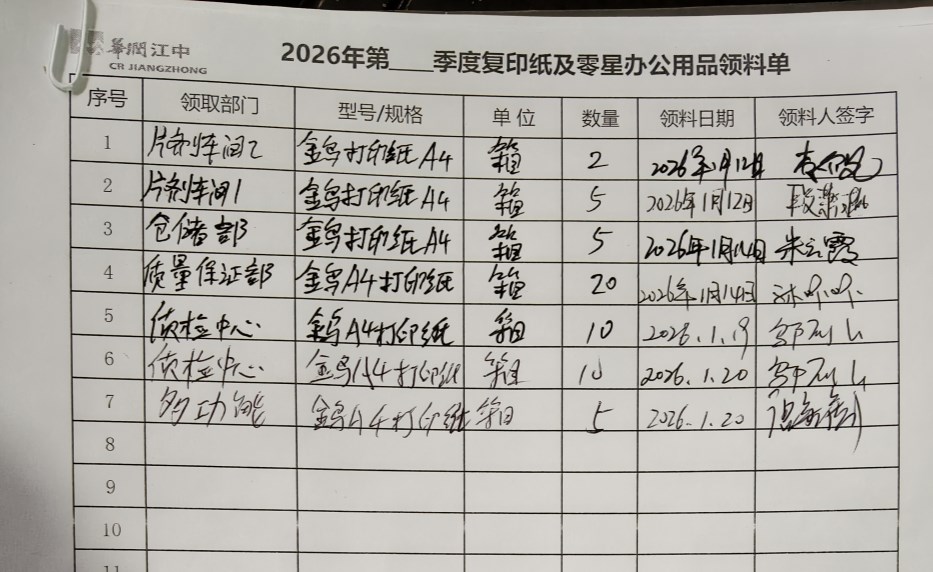 華潤江中
CR JIANGZHONG
2026年第____季度复印纸及零星办公用品领料单
序号 领取部门 型号/规格 单位 数量 领料日期 领料人签字
1 片剂车间2 金鸟打印纸A4 箱 2 2026年1月12日
2 片剂车间1 金鸟打印纸A4 箱 5 2026年1月12日
3 仓储部 金鸟打印纸A4 箱 5 2026年1月14日 朱云霞
4 质量保证部 金鸟A4打印纸 箱 20 2026年1月14日
5 质检中心 金鸟A4打印纸 箱 10 2026.1.19
6 质检中心 金鸟A4打印纸 箱 10 2026.1.20
7 多功能 金鸟A4打印纸 箱 5 2026.1.20
8
9
10
11